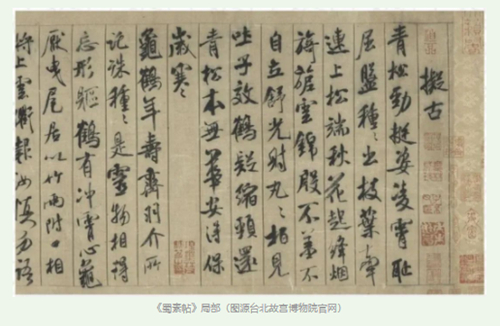 擬古
青松勁挺姿凌霄恥
屈盤種〻出枝葉牽
連上松端秋花起絳烟
旖旎雲錦殷不羞不
自立舒光射丸〻柏見
吐子效鶴疑縮頸還
青松本無華安得保
歲寒〻
龜鶴年壽齊羽介所
託殊種〻是靈物相得
忘形軀鶴有沖霄心龜
厭曳尾居以竹兩附口相
將上雲衢報汝慎勿語
《蜀素帖》局部（图源台北故宫博物院官网）